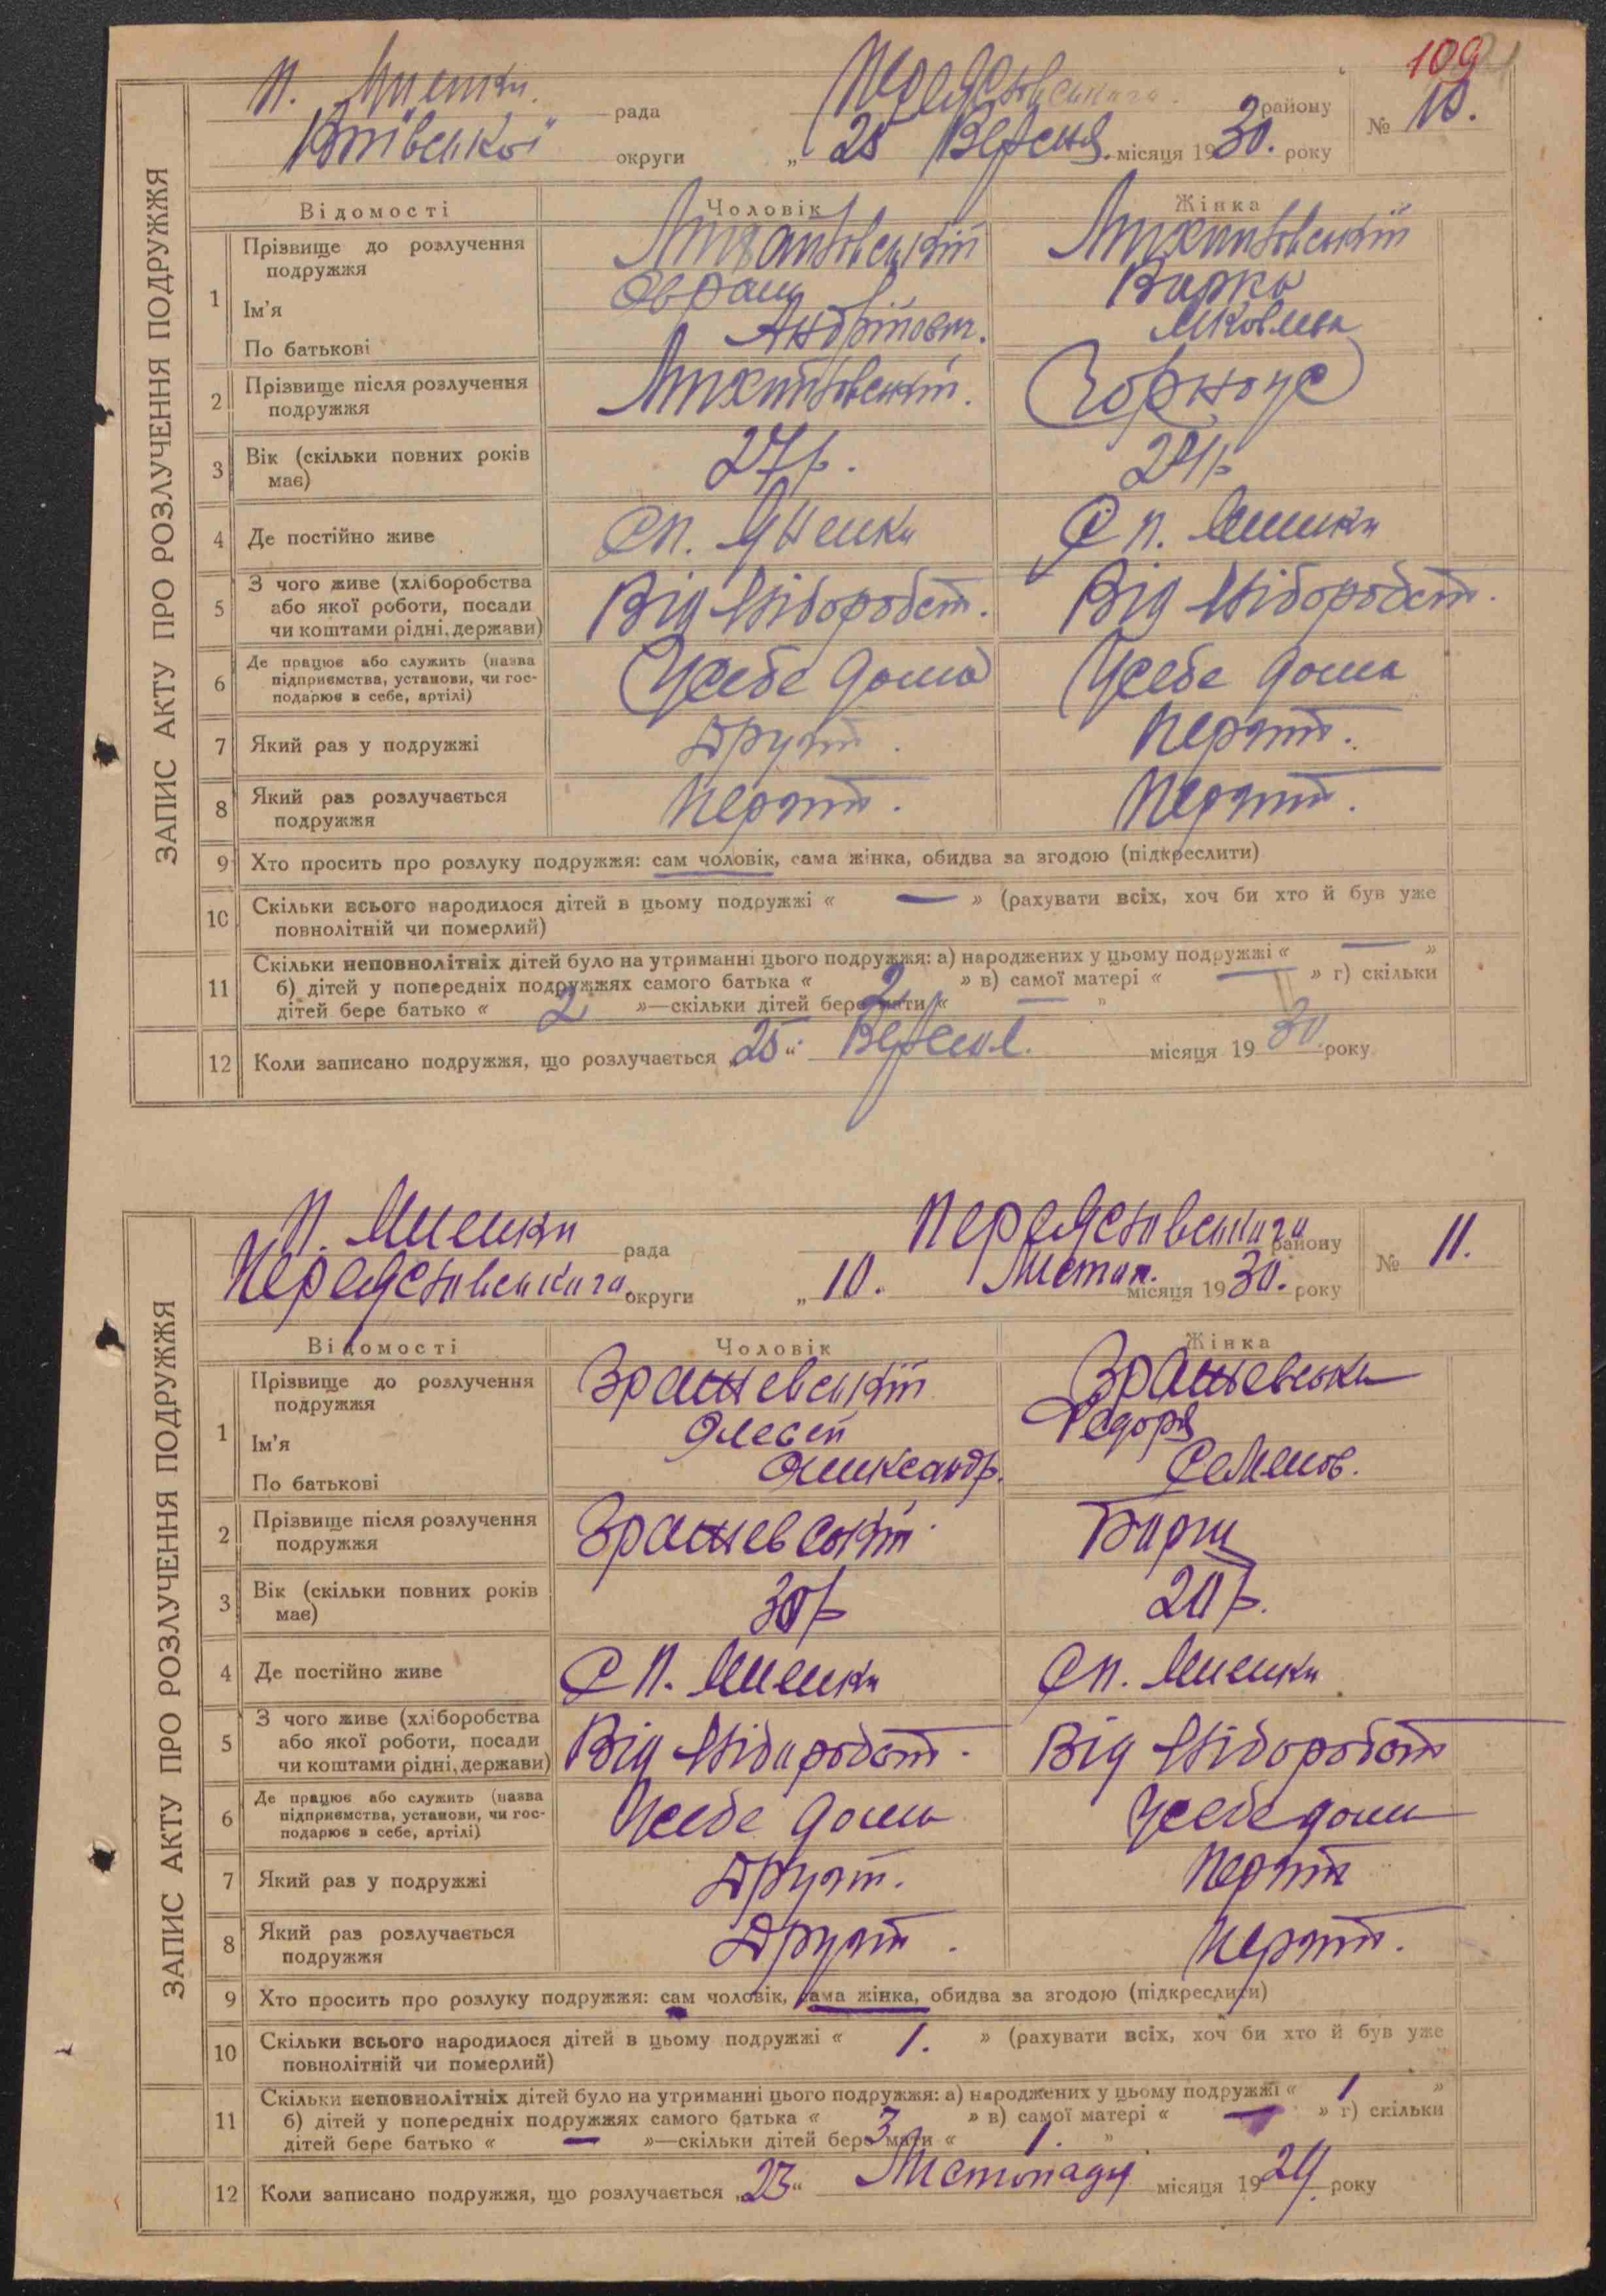 109
рада
району
№ 10.
Київської округи „ 25 Вересня місяця 1930. року
ЗАПИС АКТУ ПРО РОЗЛУЧЕННЯ ПОДРУЖЖЯ
Відомості Чоловік Жінка
1 Прізвище до розлучення
подружжя
Ім'я Варка
По батькові Андрійович. Яковлева
2 Прізвище після розлучення Чорноус
подружжя
3 Вік (скільки повних років має) 27 р.
4 Де постійно живе
5 З чого живе (хліборобства
або якої роботи, посади
чи коштами рідні, держави) Від хліборобст. Від хліборобст.
6 Де працює або служить (назва
підприємства, установи, чи гос-
подарює в себе, артілі) У себе дома У себе дома
7 Який раз у подружжі Другий. Перший.
8 Який раз розлучається
подружжя Перший. Перший.
9 Хто просить про розлуку подружжя: сам чоловік, сама жінка, обидва за згодою (підкреслити)
10 Скільки всього народилося дітей в цьому подружжі « — » (рахувати всіх, хоч би хто й був уже
повнолітній чи померлий)
11 Скільки неповнолітніх дітей було на утриманні цього подружжя: а) народжених у цьому подружжі « — »
б) дітей у попередніх подружжях самого батька « 2 » в) самої матері « — » г) скільки
дітей бере батько « 2 »—скільки дітей бере мати « — »
12 Коли записано подружжя, що розлучається „25“ Вересня місяця 1930. року
рада району
№ 11.
округи „ 10. Листоп. місяця 1930. року
ЗАПИС АКТУ ПРО РОЗЛУЧЕННЯ ПОДРУЖЖЯ
Відомості Чоловік Жінка
1 Прізвище до розлучення
подружжя Зражевський Зражевська
Ім'я Олесій Федоря
По батькові Олександр. Семенов.
2 Прізвище після розлучення
подружжя Зражевський
3 Вік (скільки повних років
має) 30 р 20 р.
4 Де постійно живе
5 З чого живе (хліборобства
або якої роботи, посади
чи коштами рідні, держави) Від хліборобст. Від хліборобст
6 Де працює або служить (назва
підприємства, установи, чи гос-
подарює в себе, артілі) У себе дома У себе дома
7 Який раз у подружжі Другий. Перший
8 Який раз розлучається
подружжя Другий. Перший.
9 Хто просить про розлуку подружжя: сам чоловік, сама жінка, обидва за згодою (підкреслити)
10 Скільки всього народилося дітей в цьому подружжі « 1. » (рахувати всіх, хоч би хто й був уже
повнолітній чи померлий)
11 Скільки неповнолітніх дітей було на утриманні цього подружжя: а) народжених у цьому подружжі « 1 »
б) дітей у попередніх подружжях самого батька « 3 » в) самої матері « — » г) скільки
дітей бере батько « — »—скільки дітей бере мати « 1. »
12 Коли записано подружжя, що розлучається „23“ Листопаду місяця 1929. року